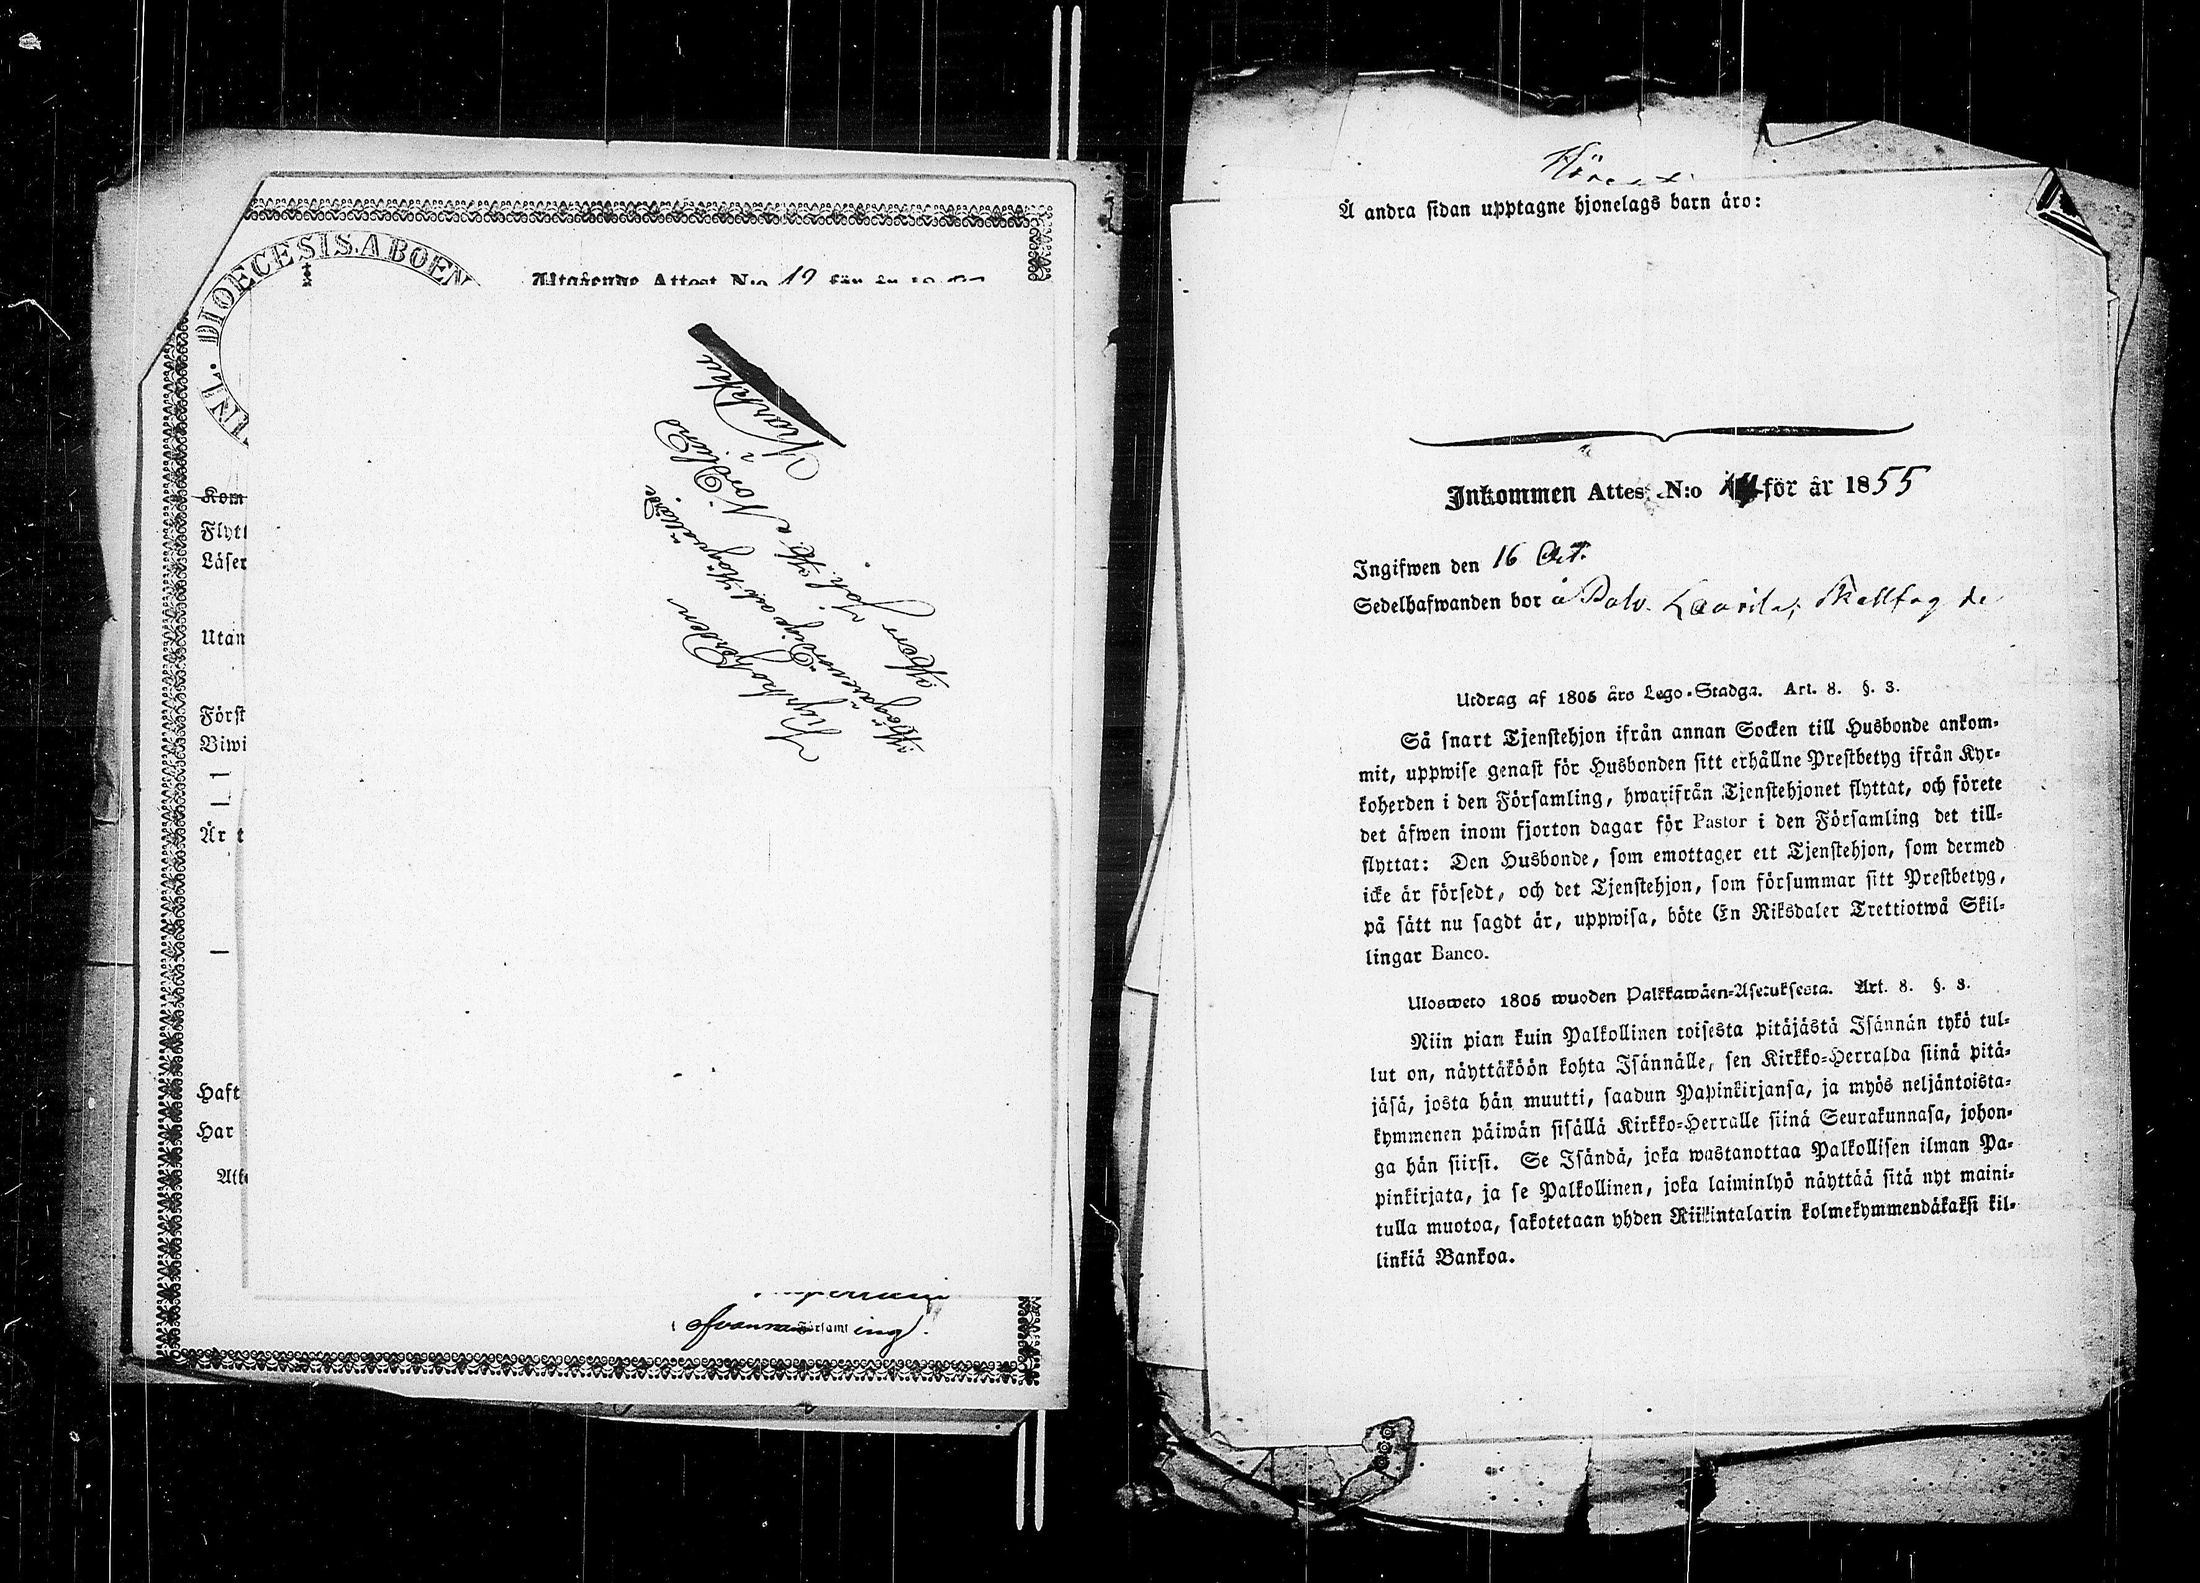 UNI. DIOECESIS. ABOEN
Utgående Attest N:o 12 för år 18
Kyrko Herden
Högvärdige och Höglärde
Herr Joh. H. a Nordlund
i
Karkku
Kom
Flytt
Läser
Utan
Först
Biwi
—
—
Är t
—
Haft
Har
Atte
Församling.
Å andra sidan upptagne hjonelags barn äro:
Inkommen Attest N:o för år 1855
Ingifwen den 16 Oct.
Sedelhafwanden bor å Palv. Laurila,
Utdrag af 1805 års Lego-Stadga. Art. 8. §. 3.
Så snart Tjenstehjon ifrån annan Socken till Husbonde ankom-
mit, uppwise genast för Husbonden sitt erhållne Prestbetyg ifrån Kyr-
koherden i den Församling, hwarifrån Tjenstehjonet flyttat, och förete
det äfwen inom fjorton dagar för Pastor i den Församling det till-
flyttat: Den Husbonde, som emottager ett Tjenstehjon, som dermed
icke är försedt, och det Tjenstehjon, som försummar sitt Prestbetyg,
på sätt nu sagdt är, uppwisa, böte En Riksdaler Trettiotwå Skil-
lingar Banco.
Ulosweto 1805 wuoden Palkkawäen-Asetuksesta. Art. 8. §. 3.
Niin pian kuin Palkollinen toisesta pitäjästä Isännän tykö tul-
lut on, näyttäköön kohta Isännälle, sen Kirkko-Herralda siinä pitä-
jäsä, josta hän muutti, saadun Papinkirjansa, ja myös neljäntoista-
kymmenen päiwän sisällä Kirkko-Herralle siinä Seurakunnasa, johon-
ga hän siirsi. Se Isändä, joka wastanottaa Palkollisen ilman Pa-
pinkirjata, ja se Palkollinen, joka laiminlyö näyttää sitä nyt maini-
tulla muotoa, sakotetaan yhden Riikintalarin kolmekymmendäkaksi kil-
linkiä Bankoa.